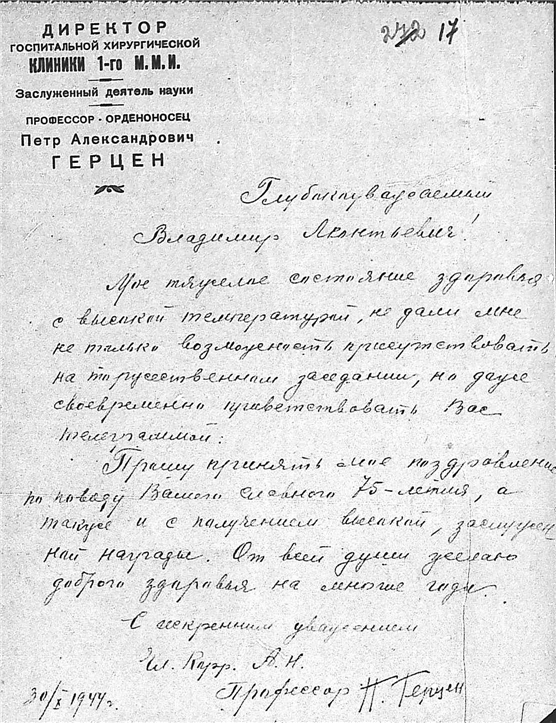 272 17
ДИРЕКТОР
ГОСПИТАЛЬНОЙ ХИРУРГИЧЕСКОЙ
КЛИНИКИ 1-го М.М.И.
Заслуженный деятель науки
ПРОФЕССОР - ОРДЕНОНОСЕЦ
Петр Александрович
ГЕРЦЕН
Глубокоуважаемый
Владимир Леонтьевич!
Мое тяжелое состояние здоровья
с высокой температурой, не дали мне
не только возможность присутствовать
на торжественном заседании, но даже
своевременно приветствовать Вас
телеграммой.
Прошу принять мое поздравление
по поводу Вашего славного 75-летия, а
также и с получением высокой, заслужен
ной награды. От всей души желаю
доброго здоровья на многие годы.
С искренним уважением
Чл. Корр. А.Н.
Профессор П. Герцен
30/X 1944г.